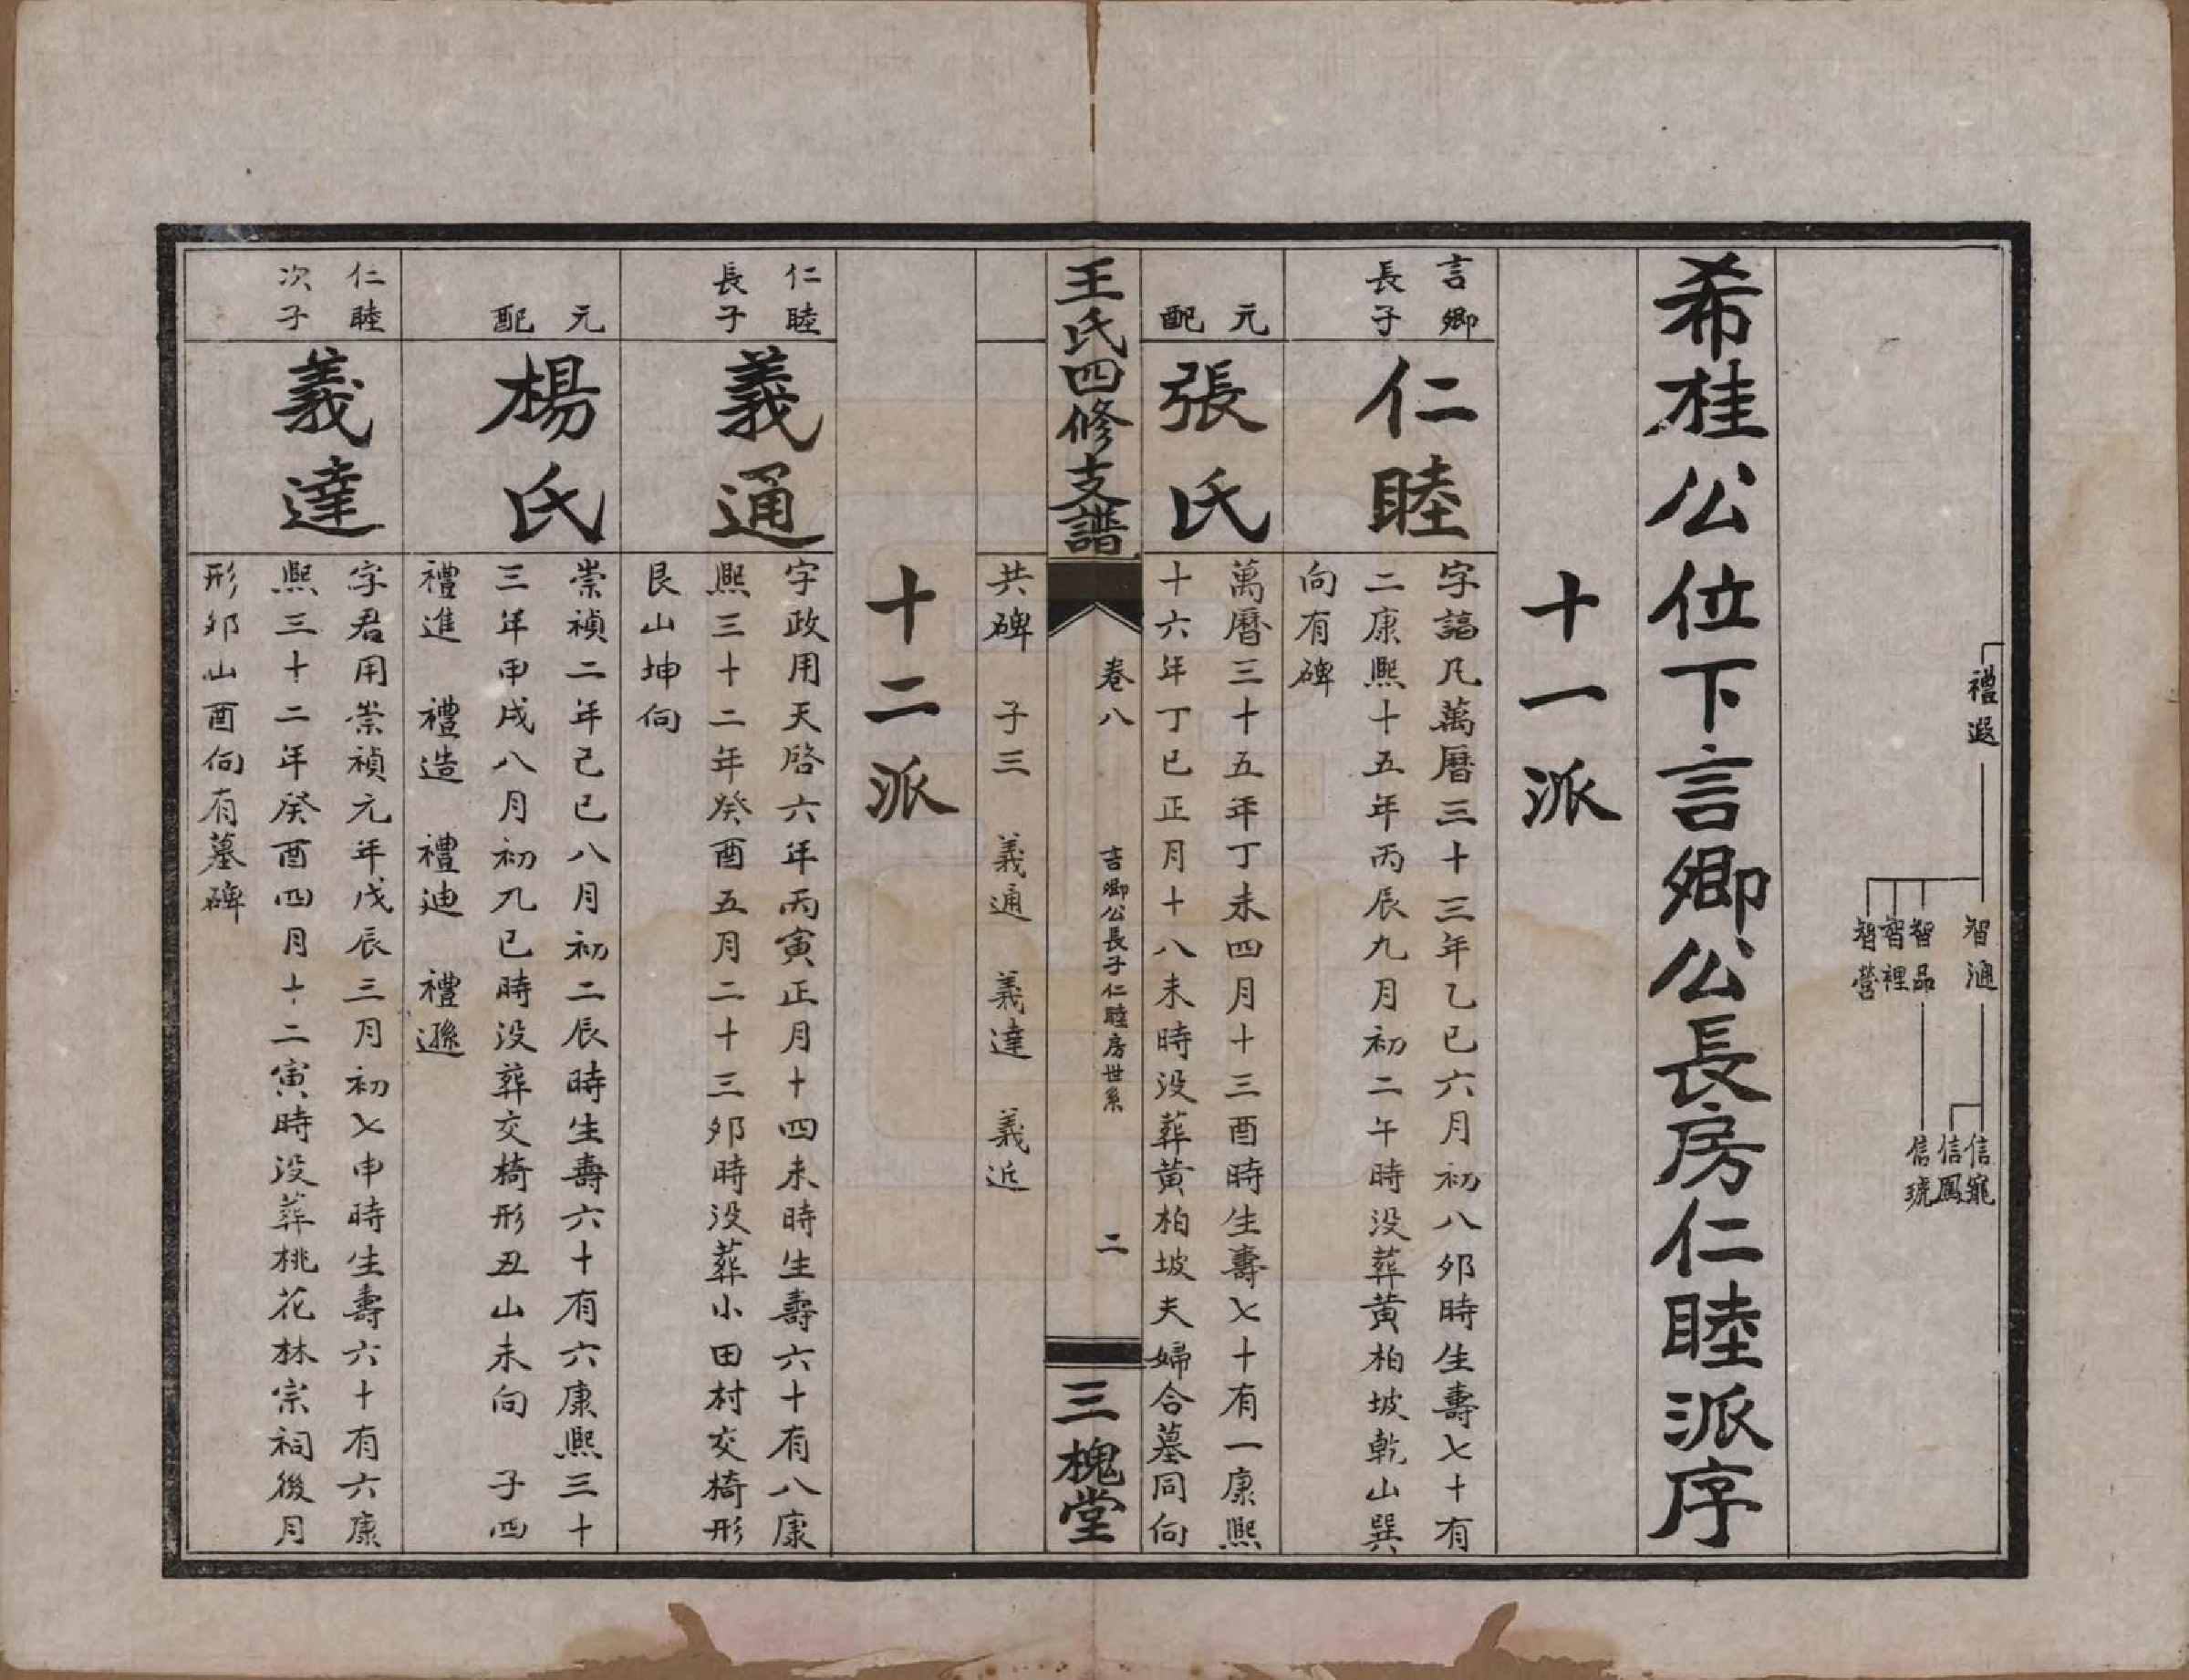 禮遐
智通
智品
智裡
智營
信寵
信鳳
信琥
希桂公位下言卿公長房仁睦派序
十一派
言卿
長子
仁睦
字諨凡萬曆三十三年乙巳六月初八夘時生壽七十有
二康熙十五年丙辰九月初二午時没葬黄柏坡乾山巽
向有碑
元
配
張氏
萬曆三十五年丁未四月十三酉時生壽七十有一康熙
十六年丁巳正月十八未時没葬黄柏坡夫婦合墓同向
王氏四修支譜
卷八
言卿公長子仁睦房世系
二
三槐堂
共碑 子三 義通 義達 義近
十二派
仁睦
長子
義通
字政用天啓六年丙寅正月十四未時生壽六十有八康
熙三十二年癸酉五月二十三夘時没葬小田村交椅形
艮山坤向
元
配
楊氏
崇禎二年己巳八月初二辰時生壽六十有六康熙三十
三年甲戌八月初九巳時没葬交椅形丑山未向 子四
禮進 禮造 禮迪 禮遜
仁睦
次子
義達
字君用崇禎元年戊辰三月初七申時生壽六十有六康
熙三十二年癸酉四月十二寅時没葬桃花林宗祠後月
形夘山酉向有墓碑